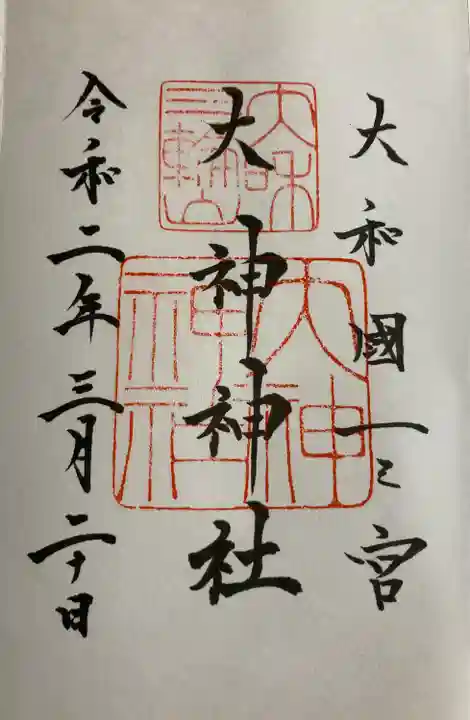 大和國一之宮
大神神社
令和二年三月二十日
大和
三輪山
大神
神社